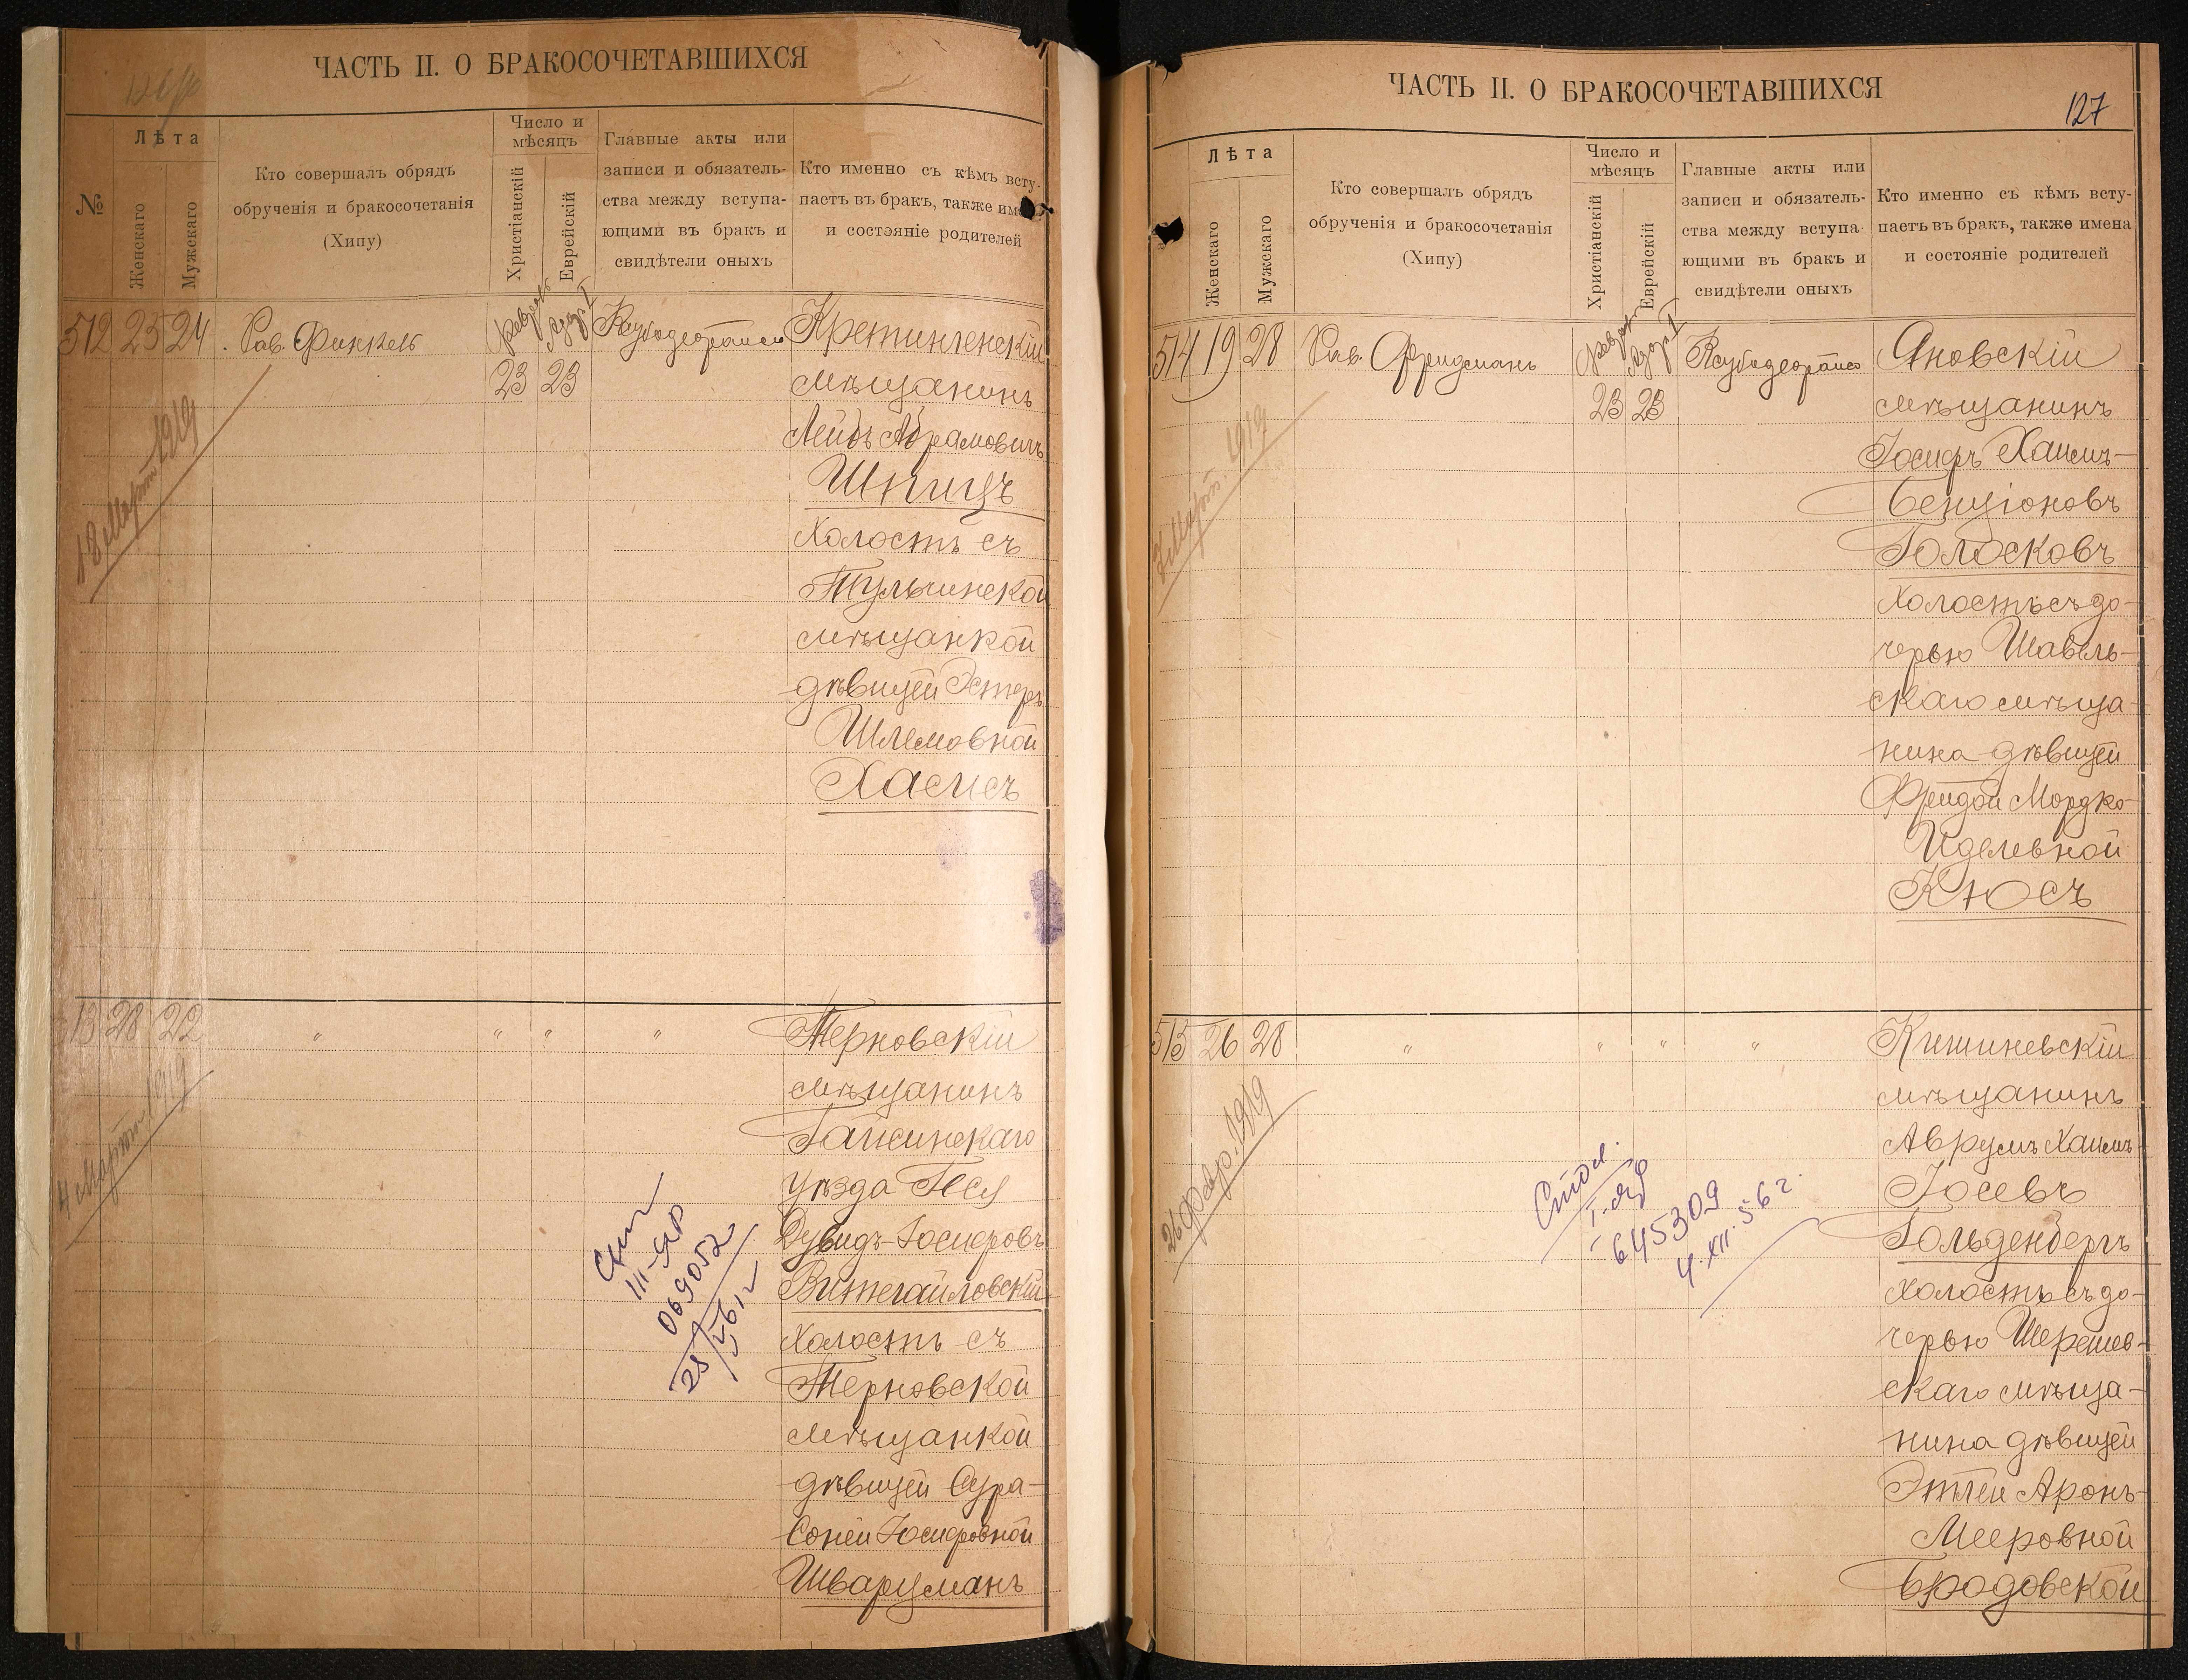 ЧАСТЬ II. О БРАКОСОЧЕТАВШИХСЯ
№
Лѣта
Женскаго
Мужскаго
Кто совершалъ обрядъ
обрученія и бракосочетанія
(Хипу)
Число и
мѣсяцъ
Христіанскій
Еврейскій
Главные акты или
записи и обязатель-
ства между вступа-
ющими въ бракъ и
свидѣтели оныхъ
Кто именно съ кѣмъ всту-
паетъ въ бракъ, также имена
и состояніе родителей
512 23 24 Рав. Финкель
23 23
18 Марта 1919
Кретингенскій
мѣщанинъ
Лейбъ Абрамовичъ
Шпицъ
Холостъ съ
Тульчинской
мѣщанкой
дѣвицей Эстеръ
Шлемовной
Хаисъ
13 28 22 " " " "
4 Марта 1919
Терновскій
мѣщанинъ
Гайсинскаго
уѣзда
Дувидъ-Іосифовъ
Витегайловскій
Холостъ съ
Терновской
мѣщанкой
дѣвицей Сура-
Соней Іосифовной
Шварцманъ
III-ЯР
069052
ЧАСТЬ II. О БРАКОСОЧЕТАВШИХСЯ
127
Лѣта
Женскаго
Мужскаго
Кто совершалъ обрядъ
обрученія и бракосочетанія
(Хипу)
Число и
мѣсяцъ
Христіанскій
Еврейскій
Главные акты или
записи и обязатель-
ства между вступа-
ющими въ бракъ и
свидѣтели оныхъ
Кто именно съ кѣмъ всту-
паетъ въ бракъ, также имена
и состояніе родителей
514 19 28 Рав. Фридманъ
23 23
Марта 1919
Яновскій
мѣщанинъ
Іосифъ Хаимъ-
Бенціоновъ
Голосковъ
Холостъ съ до-
черью Шавель-
скаго мѣща-
нина дѣвицей
Фрейдой Мордко-
Иделевной
Кюсъ
515 26 28 " " " "
26 февр. 1919
Кишиневскій
мѣщанинъ
Аврумъ Хаимъ-
Іосевъ
Гольденбергъ
Холостъ съ до-
черью Шерешев-
скаго мѣща-
нина дѣвицей
Этлей Аронъ-
Мееровной
Бродовской
645309
4.XII.56 г.